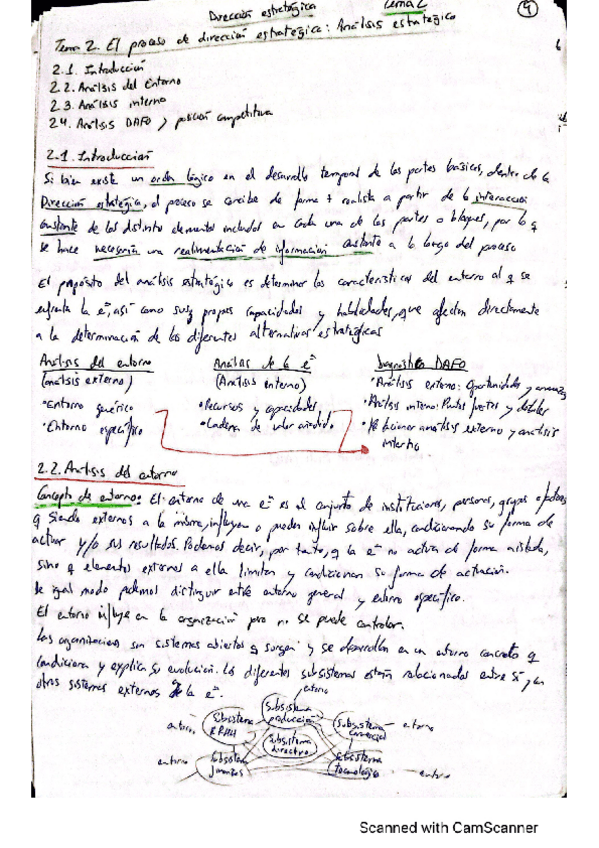 Dirección estratégica Tema 2 4
Tema 2. El proceso de dirección estratégica: Análisis estratégico
2.1. Introducción
2.2. Análisis del Entorno
2.3. Análisis interno
2.4. Análisis DAFO y posición competitiva
2.1. Introducción
Si bien existe un orden lógico en el desarrollo temporal de las partes básicas, dentro de la
Dirección estratégica, el proceso se concibe de forma + realista a partir de la interacción
constante de los distintos elementos incluidos en cada una de las partes o bloques, por lo q
se hace necesaria una realimentación de información constante a lo largo del proceso
El propósito del análisis estratégico es determinar las características del entorno al q se
enfrenta la eª, así como sus propias capacidades y habilidades, que afectan directamente
a la determinación de las diferentes alternativas estratégicas
Análisis del entorno Análisis de la eª Diagnóstico DAFO
(análisis externo) (Análisis interno) •Análisis externo: Oportunidades y amenazas
•Entorno genérico •Recursos y capacidades •Análisis interno: Puntos fuertes y débiles
•Entorno específico •Cadena de valor añadido •Relacionar análisis externo y análisis
interno
2.2. Análisis del entorno
Concepto de entorno: El entorno de una eª es el conjunto de instituciones, personas, grupos
q siendo externos a la misma, influyen o pueden influir sobre ella, condicionando su forma de
actuar y/o sus resultados. Podemos decir, por tanto, q la eª no actúa de forma aislada,
sino q elementos externos a ella limitan y condicionan su forma de actuación.
De igual modo podemos distinguir entre entorno general y entorno específico.
El entorno influye en la organización pero no se puede controlar.
Las organizaciones son sistemas abiertos q surgen y se desarrollan en un entorno concreto q
condiciona y explica su evolución. Los diferentes subsistemas están relacionados entre sí, y con
otros sistemas externos de la eª.
entorno
Subsistema producción
entorno Subsistema RRHH Subsistema comercial entorno
Subsistema directivo
entorno Subsistema Subsistema tecnológico entorno
Scanned with CamScanner